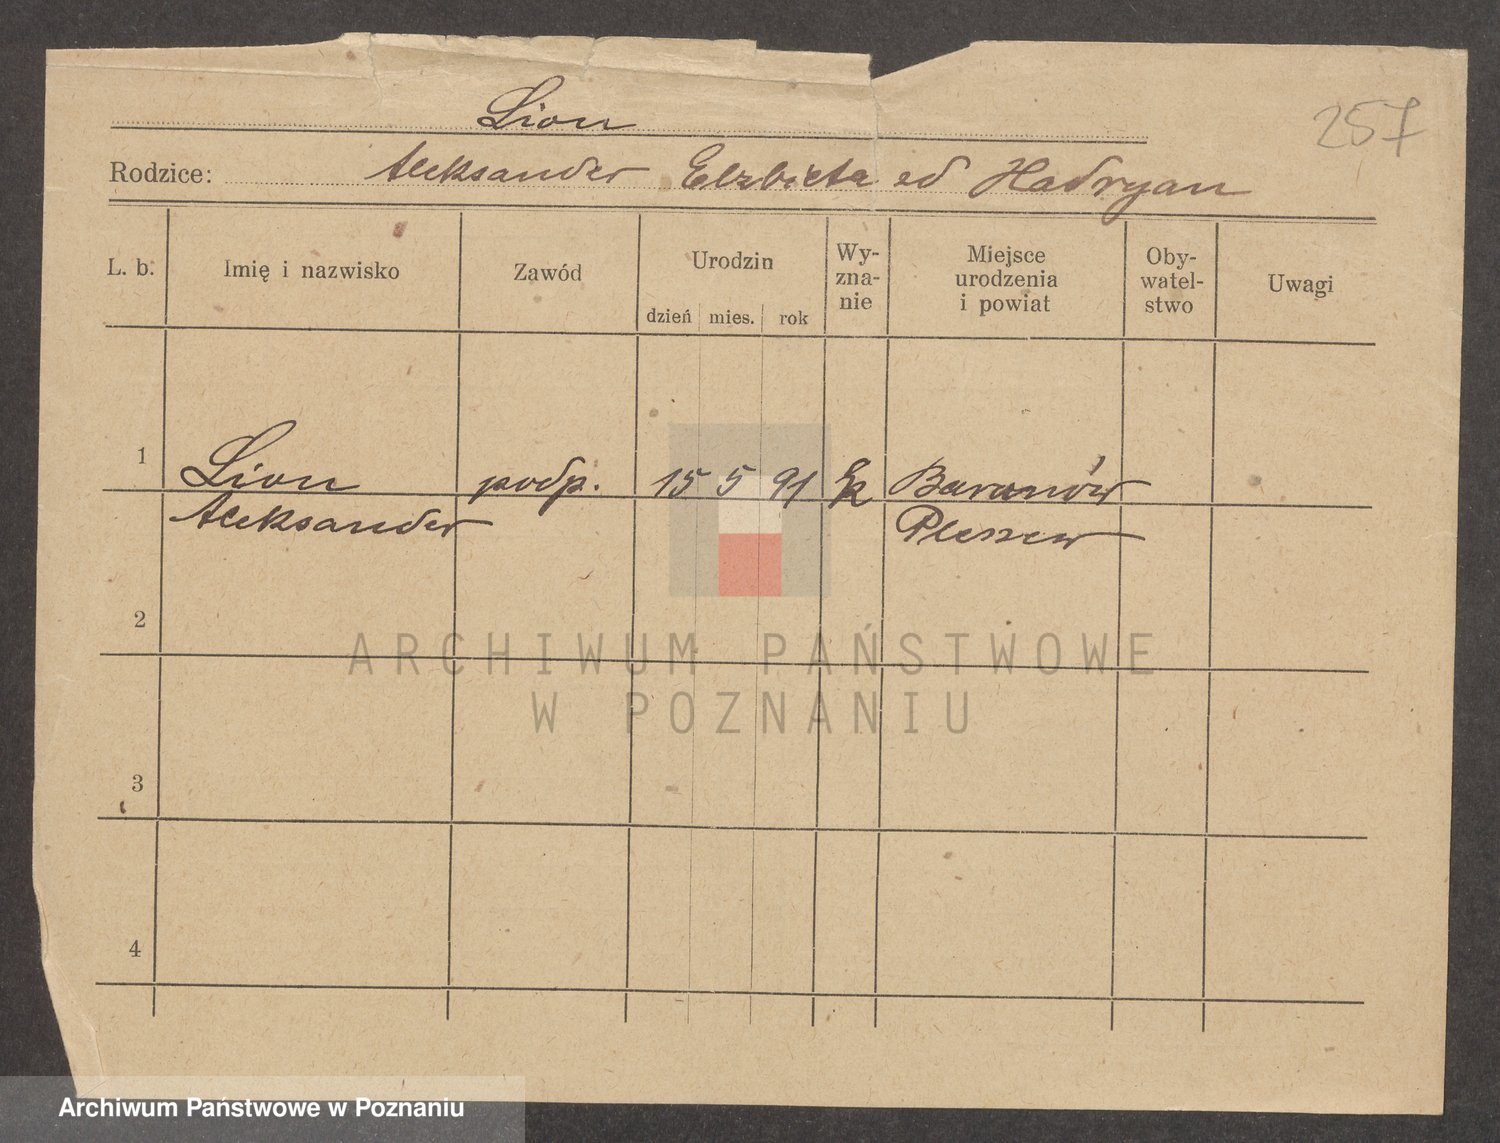 Lion
257
Rodzice: Aleksander Elzbieta ed Hadryan
L. b. Imię i nazwisko Zawód Urodzin dzień mies. rok Wy-zna-nie Miejsce urodzenia i powiat Oby-watel-stwo Uwagi
1 Lion podp. 15 5 91 Baranów
Aleksander Pleszew
2
3
4
ARCHIWUM PAŃSTWOWE
W POZNANIU
Archiwum Państwowe w Poznaniu